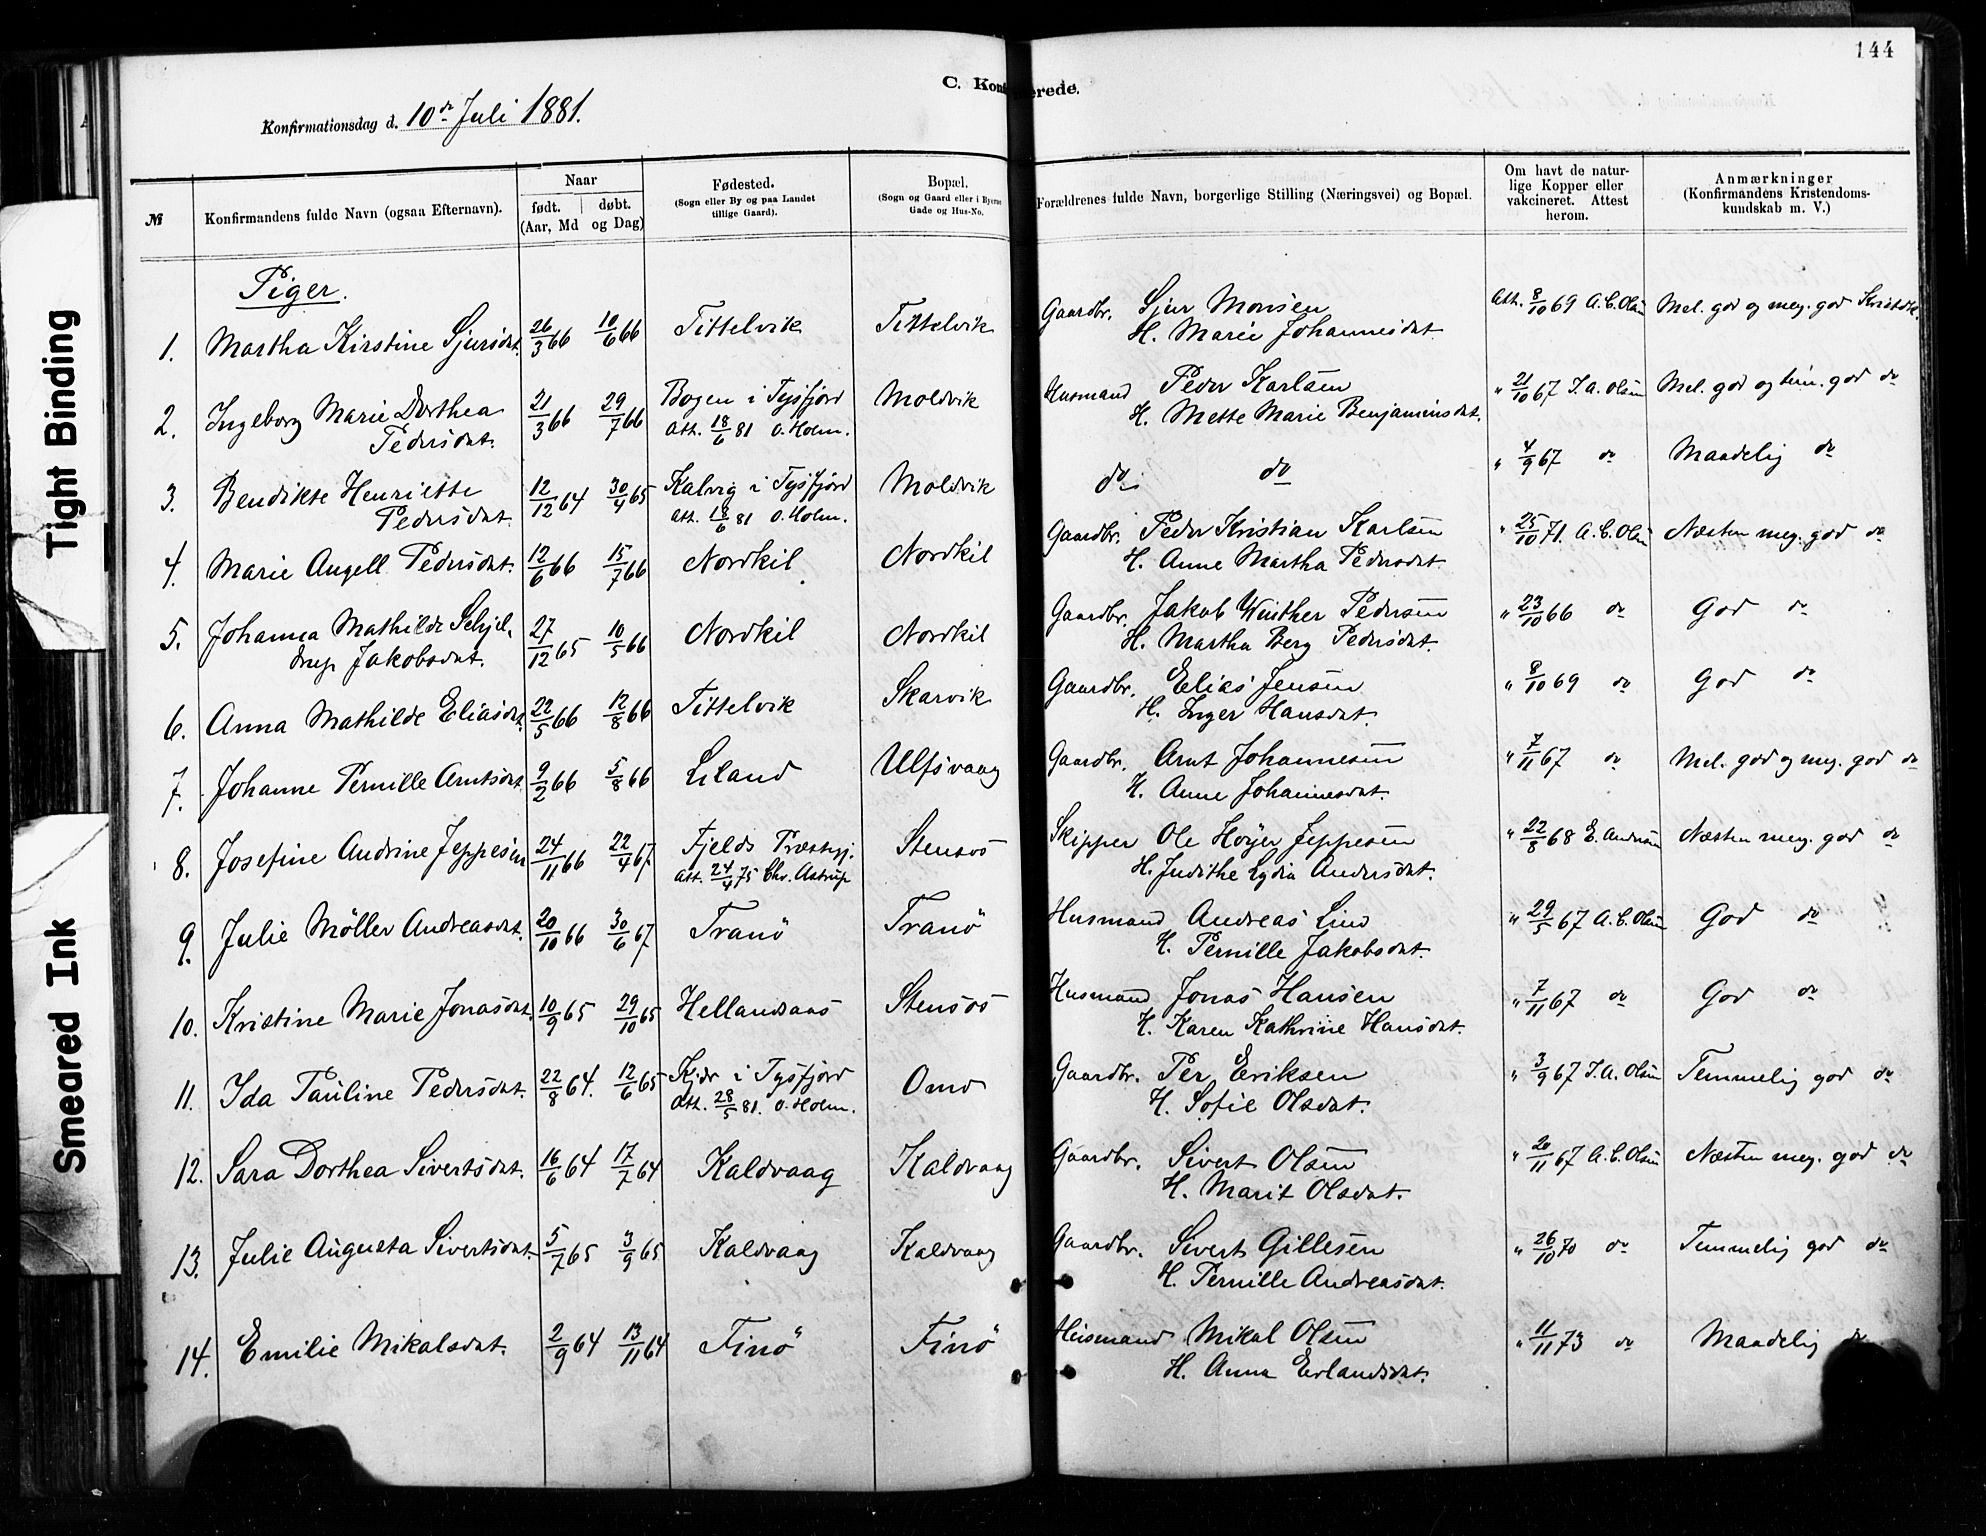 144
C. Konf
erede.
Konfirmationsdag d. 10de Juli 1881.
№
Konfirmandens fulde Navn (ogsaa Efternavn).
Naar
født. døbt.
(Aar, Md og Dag)
Fødested.
(Sogn eller By og paa Landet
tillige Gaard).
Bopæl.
(Sogn og Gaard eller i Byerne
Gade og Hus-No.
Forældrenes fulde Navn, borgerlige Stilling (Næringsvei) og Bopæl.
Om havt de natur-
lige Kopper eller
vakcineret. Attest
herom.
Anmærkninger
(Konfirmandens Kristendoms-
kundskab m. V.)
Piger.
1. Martha Kirstine Sjursdat. 26/3 66 10/6 66 Tittelvik Tittelvik Gaardbr. Sjur Monsen Att. 8/10 69 A. C. Olsen Mel. god og meg. god Kristdk.
H. Marie Johannesdat.
2. Ingeborg Marie Dorthea 21/3 66 29/7 66 Bogen i Tysfjord Moldvik Husmand Peder Karlsen " 21/10 67 J. A. Olsen Mel. god og tem. god do
Pedersdat. Att. 18/6 81 O. Holm. H. Mette Marie Benjaminsdat.
3. Bendikte Henriette 12/12 64 30/4 65 Kalvig i Tysfjord Moldvik do do " 4/9 67 do Maadelig do
Pedersdat. Att. 18/6 81 O. Holm.
4. Marie Angell Pedersdat. 12/6 66 15/7 66 Nordkil Nordkil Gaardbr. Peder Kristian Karlsen " 25/10 71. A. C. Olsen Næsten meg. god do
H. Anne Martha Pedersdat.
5. Johanna Mathilde Schjel- 27/12 65 10/5 66 Nordkil Nordkil Gaardbr. Jakob Winther Pedersen " 23/10 66 do God do
drup Jakobsdat. H. Martha Berg Pedersdat.
6. Anna Mathilde Eliasdat. 22/5 66 12/8 66 Tittelvik Skarvik Gaardbr. Elias Jensen " 8/10 69 do God do
H. Inger Hansdat.
7. Johanne Pernille Arntsdat. 9/2 66 5/8 66 Leland Ulfsvaag Gaardbr. Arnt Johannesen " 7/11 67 do Mel. god og meg. god do
H. Anne Johannesdat.
8. Josefine Andrine Jeppesen 24/11 66 22/4 67. Fjelds Præstegj. Stensøs Skipper Ole Høyer Jeppesen " 22/8 68 E. Andersen Næsten meg. god do
Att. 24/4 75 Chr. Astrup H. Judithe Lydia Andersdat.
9. Julie Möller Andreasdat. 20/10 66 30/6 67 Tranö Tranö Husmand Andreas Lind " 29/5 67 A. C. Olsen God do
H. Pernille Jakobsdat.
10. Kristine Marie Jonasdat. 10/9 65 29/10 65 Hellandsaas Stensøs Husmand Jonas Hansen " 7/11 67 do God do
H. Karen Kathrine Hansdat.
11. Ida Pauline Pedersdat. 22/8 64. 12/6 65 Kjær i Tysfjord Omd Gaardbr. Per Eriksen " 3/9 67 J. A. Olsen Temmelig god do
Att. 28/5 81. O. Holm. H. Sofie Olsdat.
12. Sara Dorthea Sivertsdat. 16/6 64 17/7 64 Kaldvaag Kaldvaag Gaardbr. Sivert Olsen " 20/11 67 A. C. Olsen Næsten meg. god do
H. Marit Olsdat.
13. Julie Augusta Sivertsdat. 5/7 65 3/9 65 Kaldvaag Kaldvaag Gaardbr. Sivert Gillesen " 26/10 70 do Temmelig god do
H. Pernille Andreasdat.
14. Emilie Mikalsdat. 2/9 64 13/11 64 Finö Finö Husmand Mikal Olsen " 11/11 73 do Maadelig do
H. Anna Erlandsdat.
Tight Binding
Smeared Ink